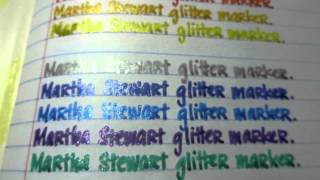 Martha Stewart glitter marker.
Martha Stewart glitter marker.
Martha Stewart glitter marker.
Martha Stewart glitter marker.
Martha Stewart glitter marker.
Martha Stewart glitter marker.
Martha Stewart glitter marker.